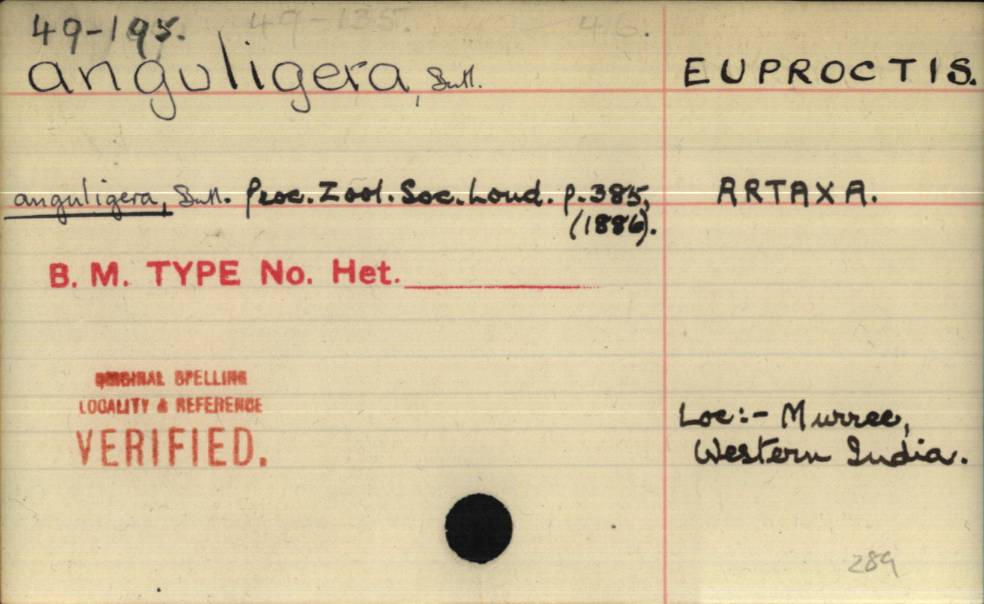 49-195. 49-135. 46.
anguligera, Butl. EUPROCTIS.
anguligera, Butl. Proc. Zool. Soc. Lond. p. 385, ARTAXA.
(1886).
B. M. TYPE No. Het.
ORIGINAL SPELLING
LOCALITY & REFERENCE
VERIFIED.
Loc:- Murree,
Western India.
289